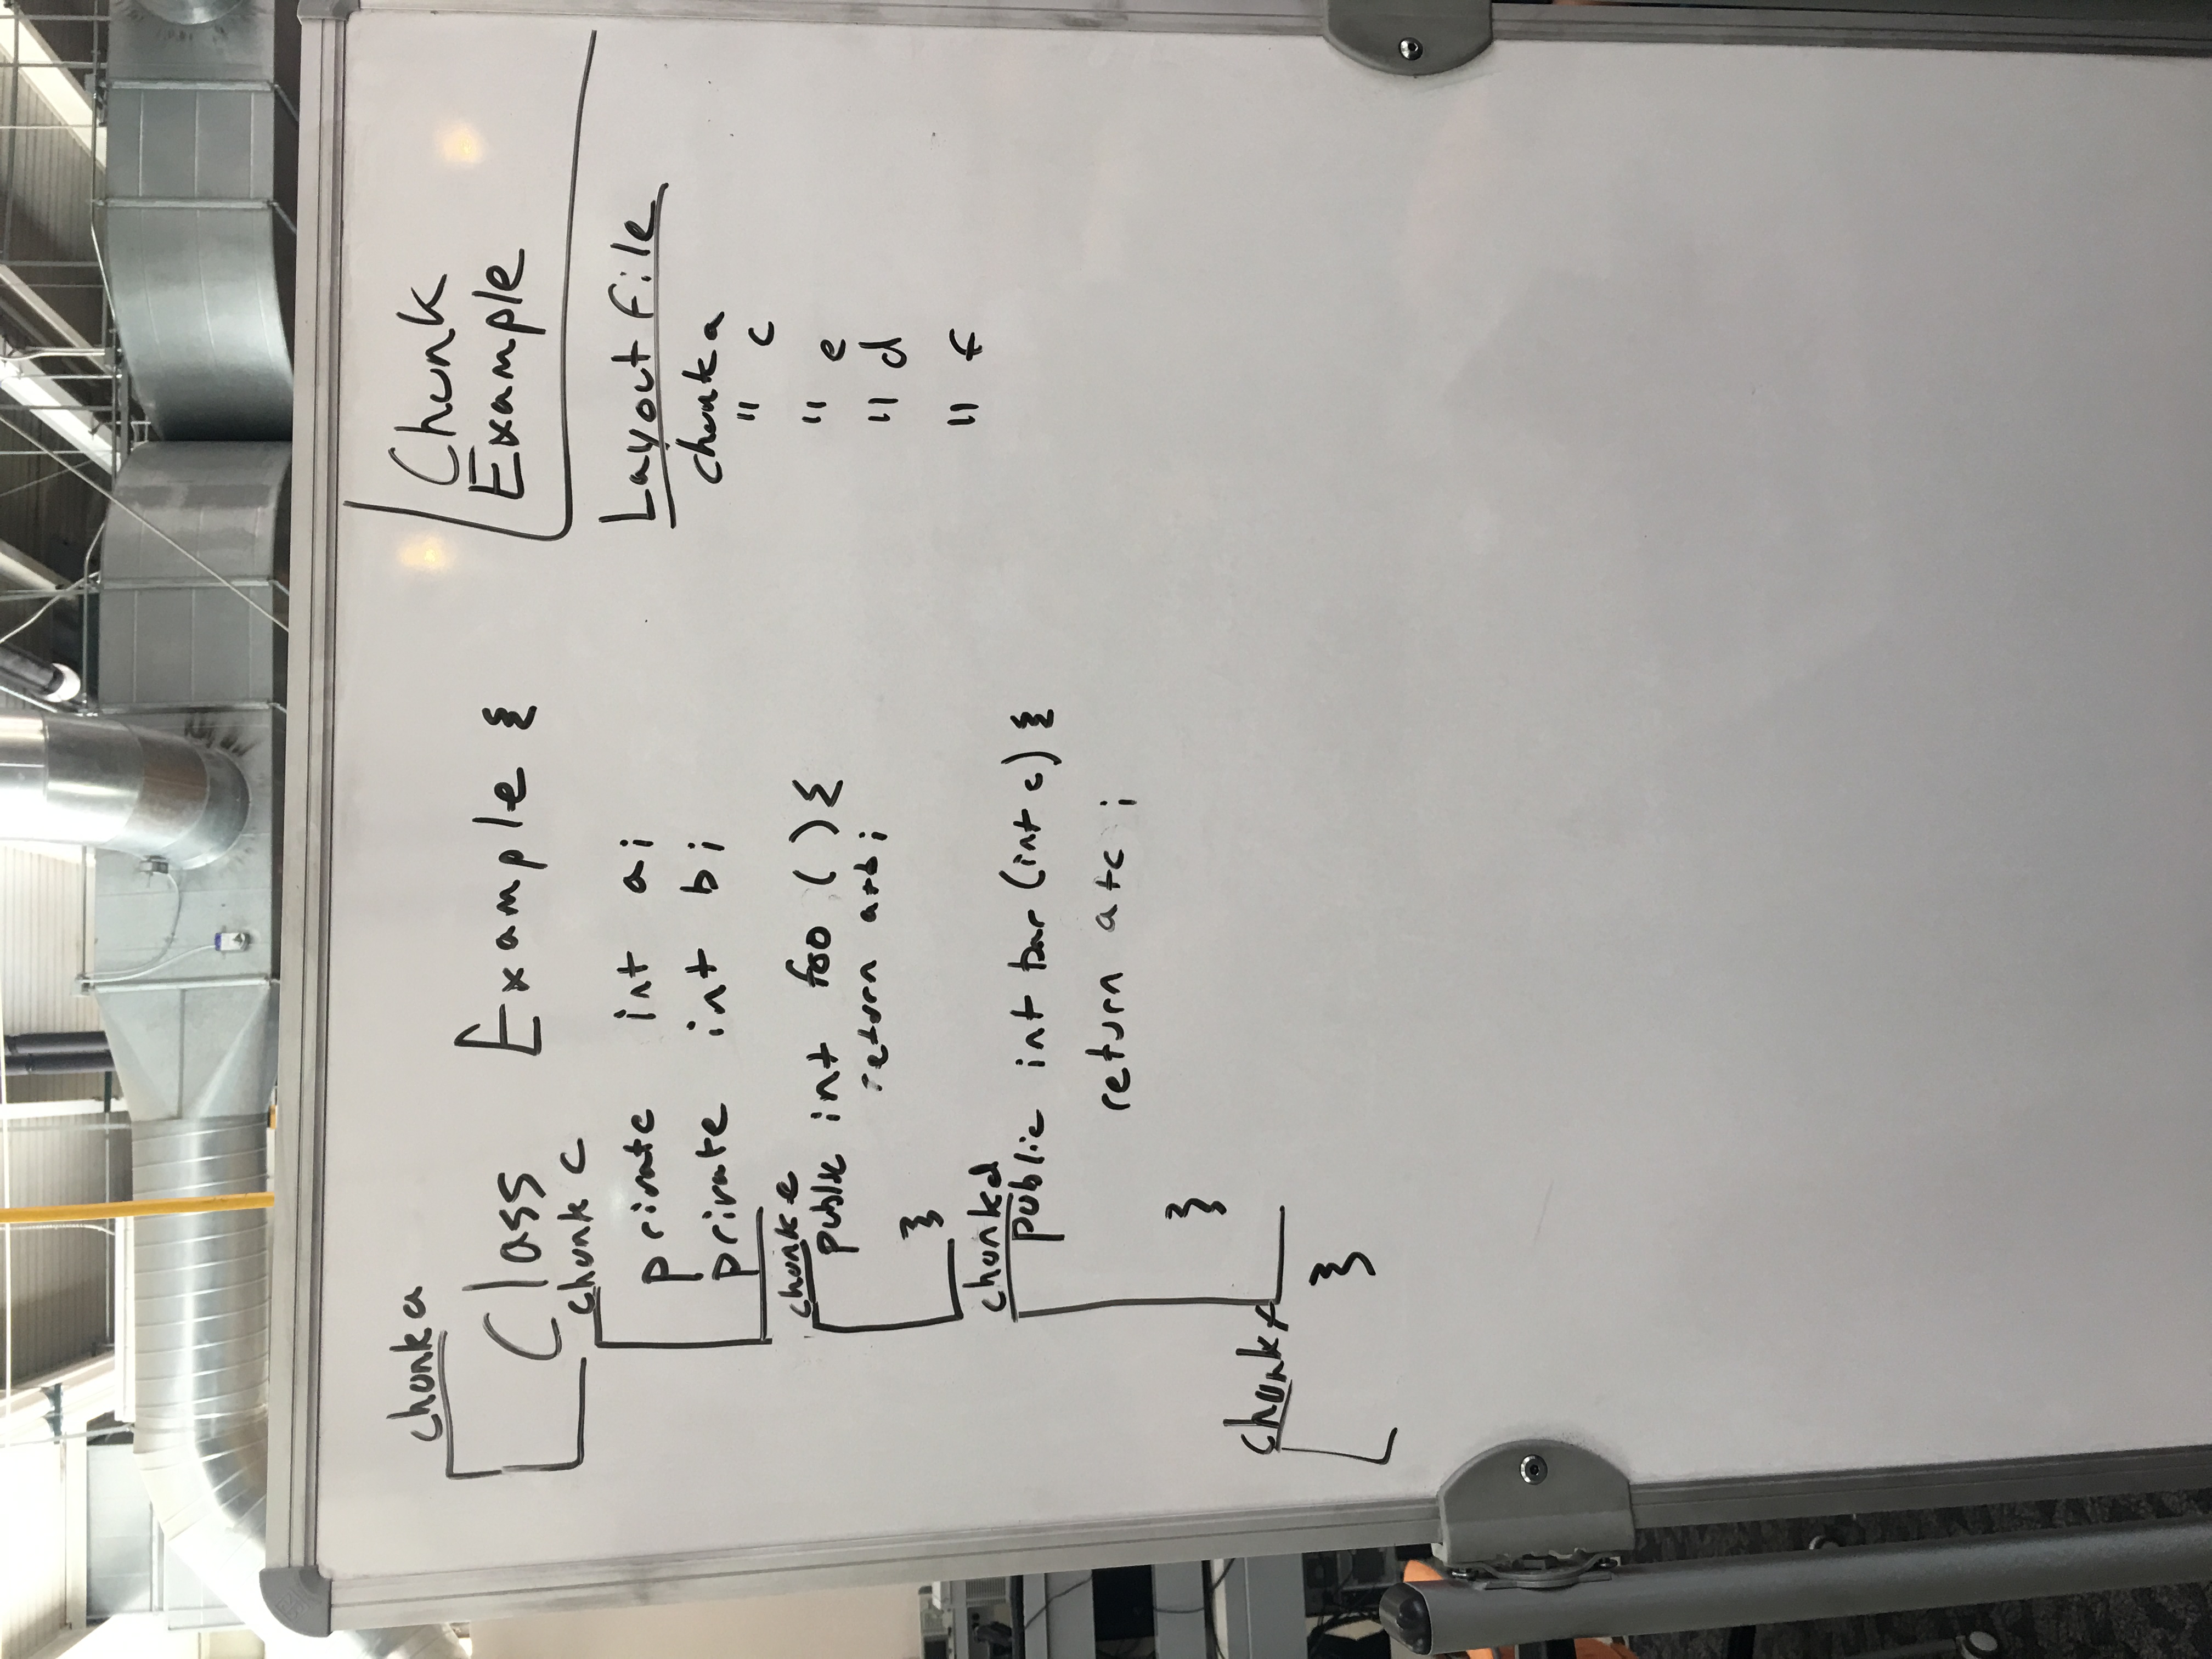 chunk a
Class Example {
chunk c
private int a;
private int b;
chunk e
public int foo () {
return a+b;
}
chunk d
public int bar (int c) {
return a+c ;
}
chunk f
}
Chunk
Example
Layout File
chunk a
" c
" e
" d
" f